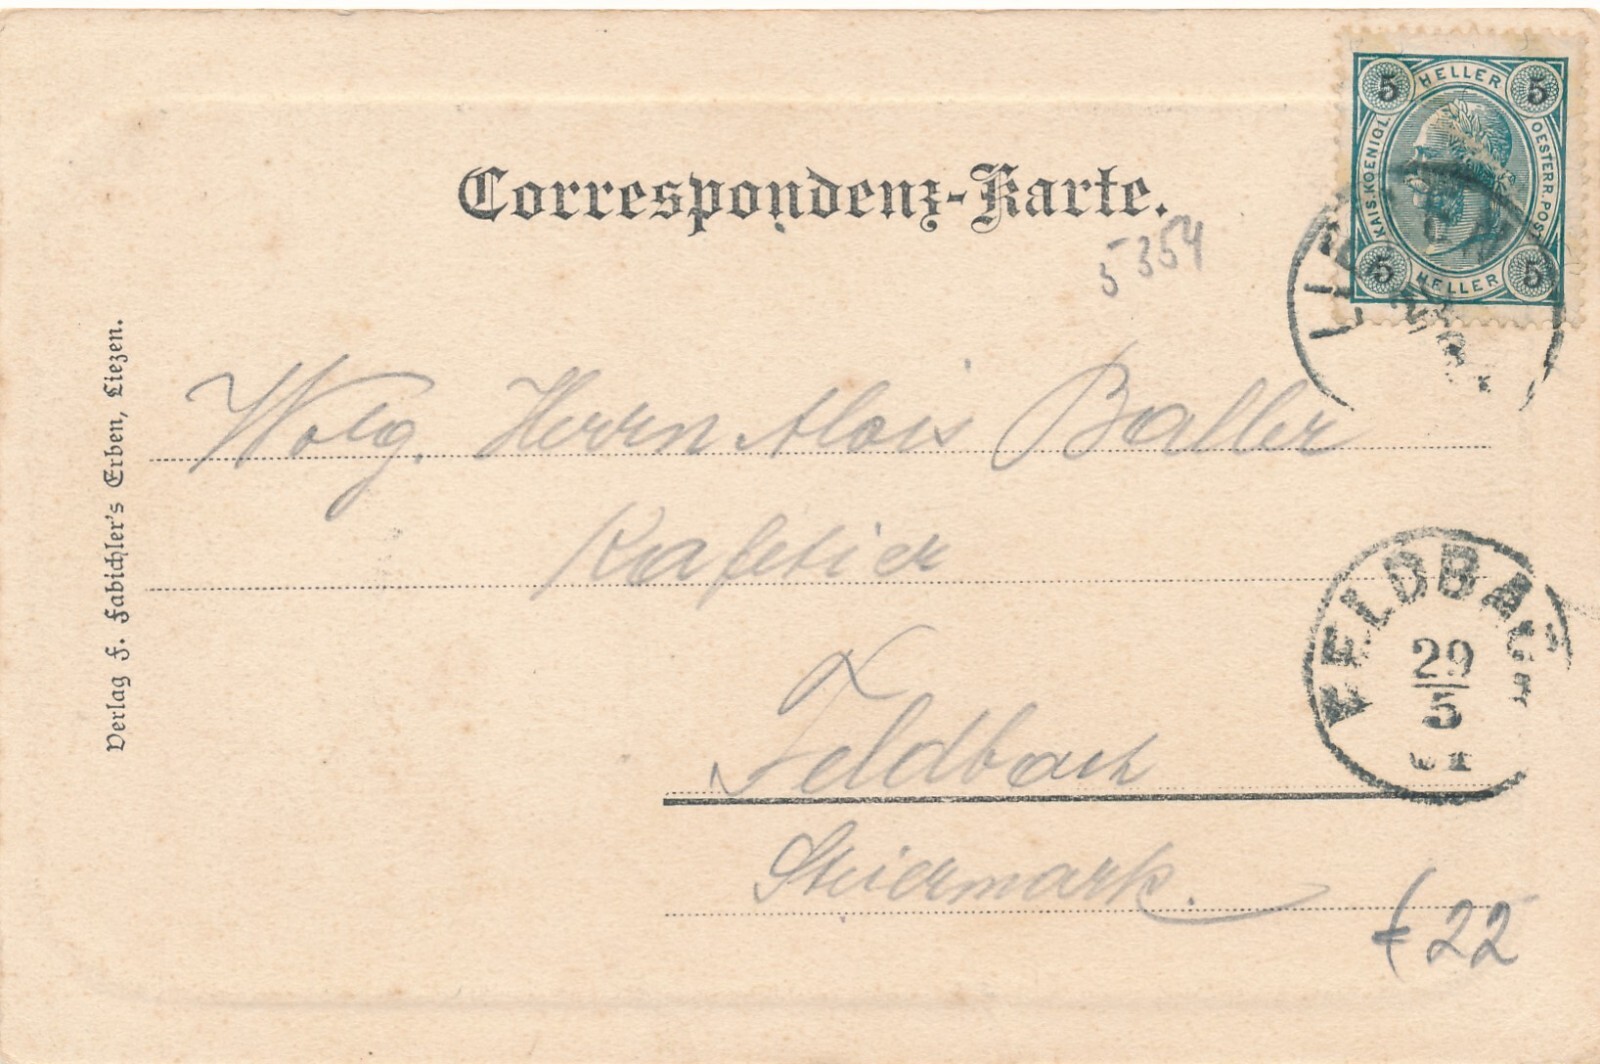 Correspondenz-Karte.
5354
5 HELLER 5
KAIS. KOENIGL. OESTERR. POST
5 HELLER 5
LIE
Herrn Alois Baller
Kafetier
Feldbach
Steiermark.
FELDBACH
29
5
01
22
Verlag F. Fabichler's Erben, Liezen.